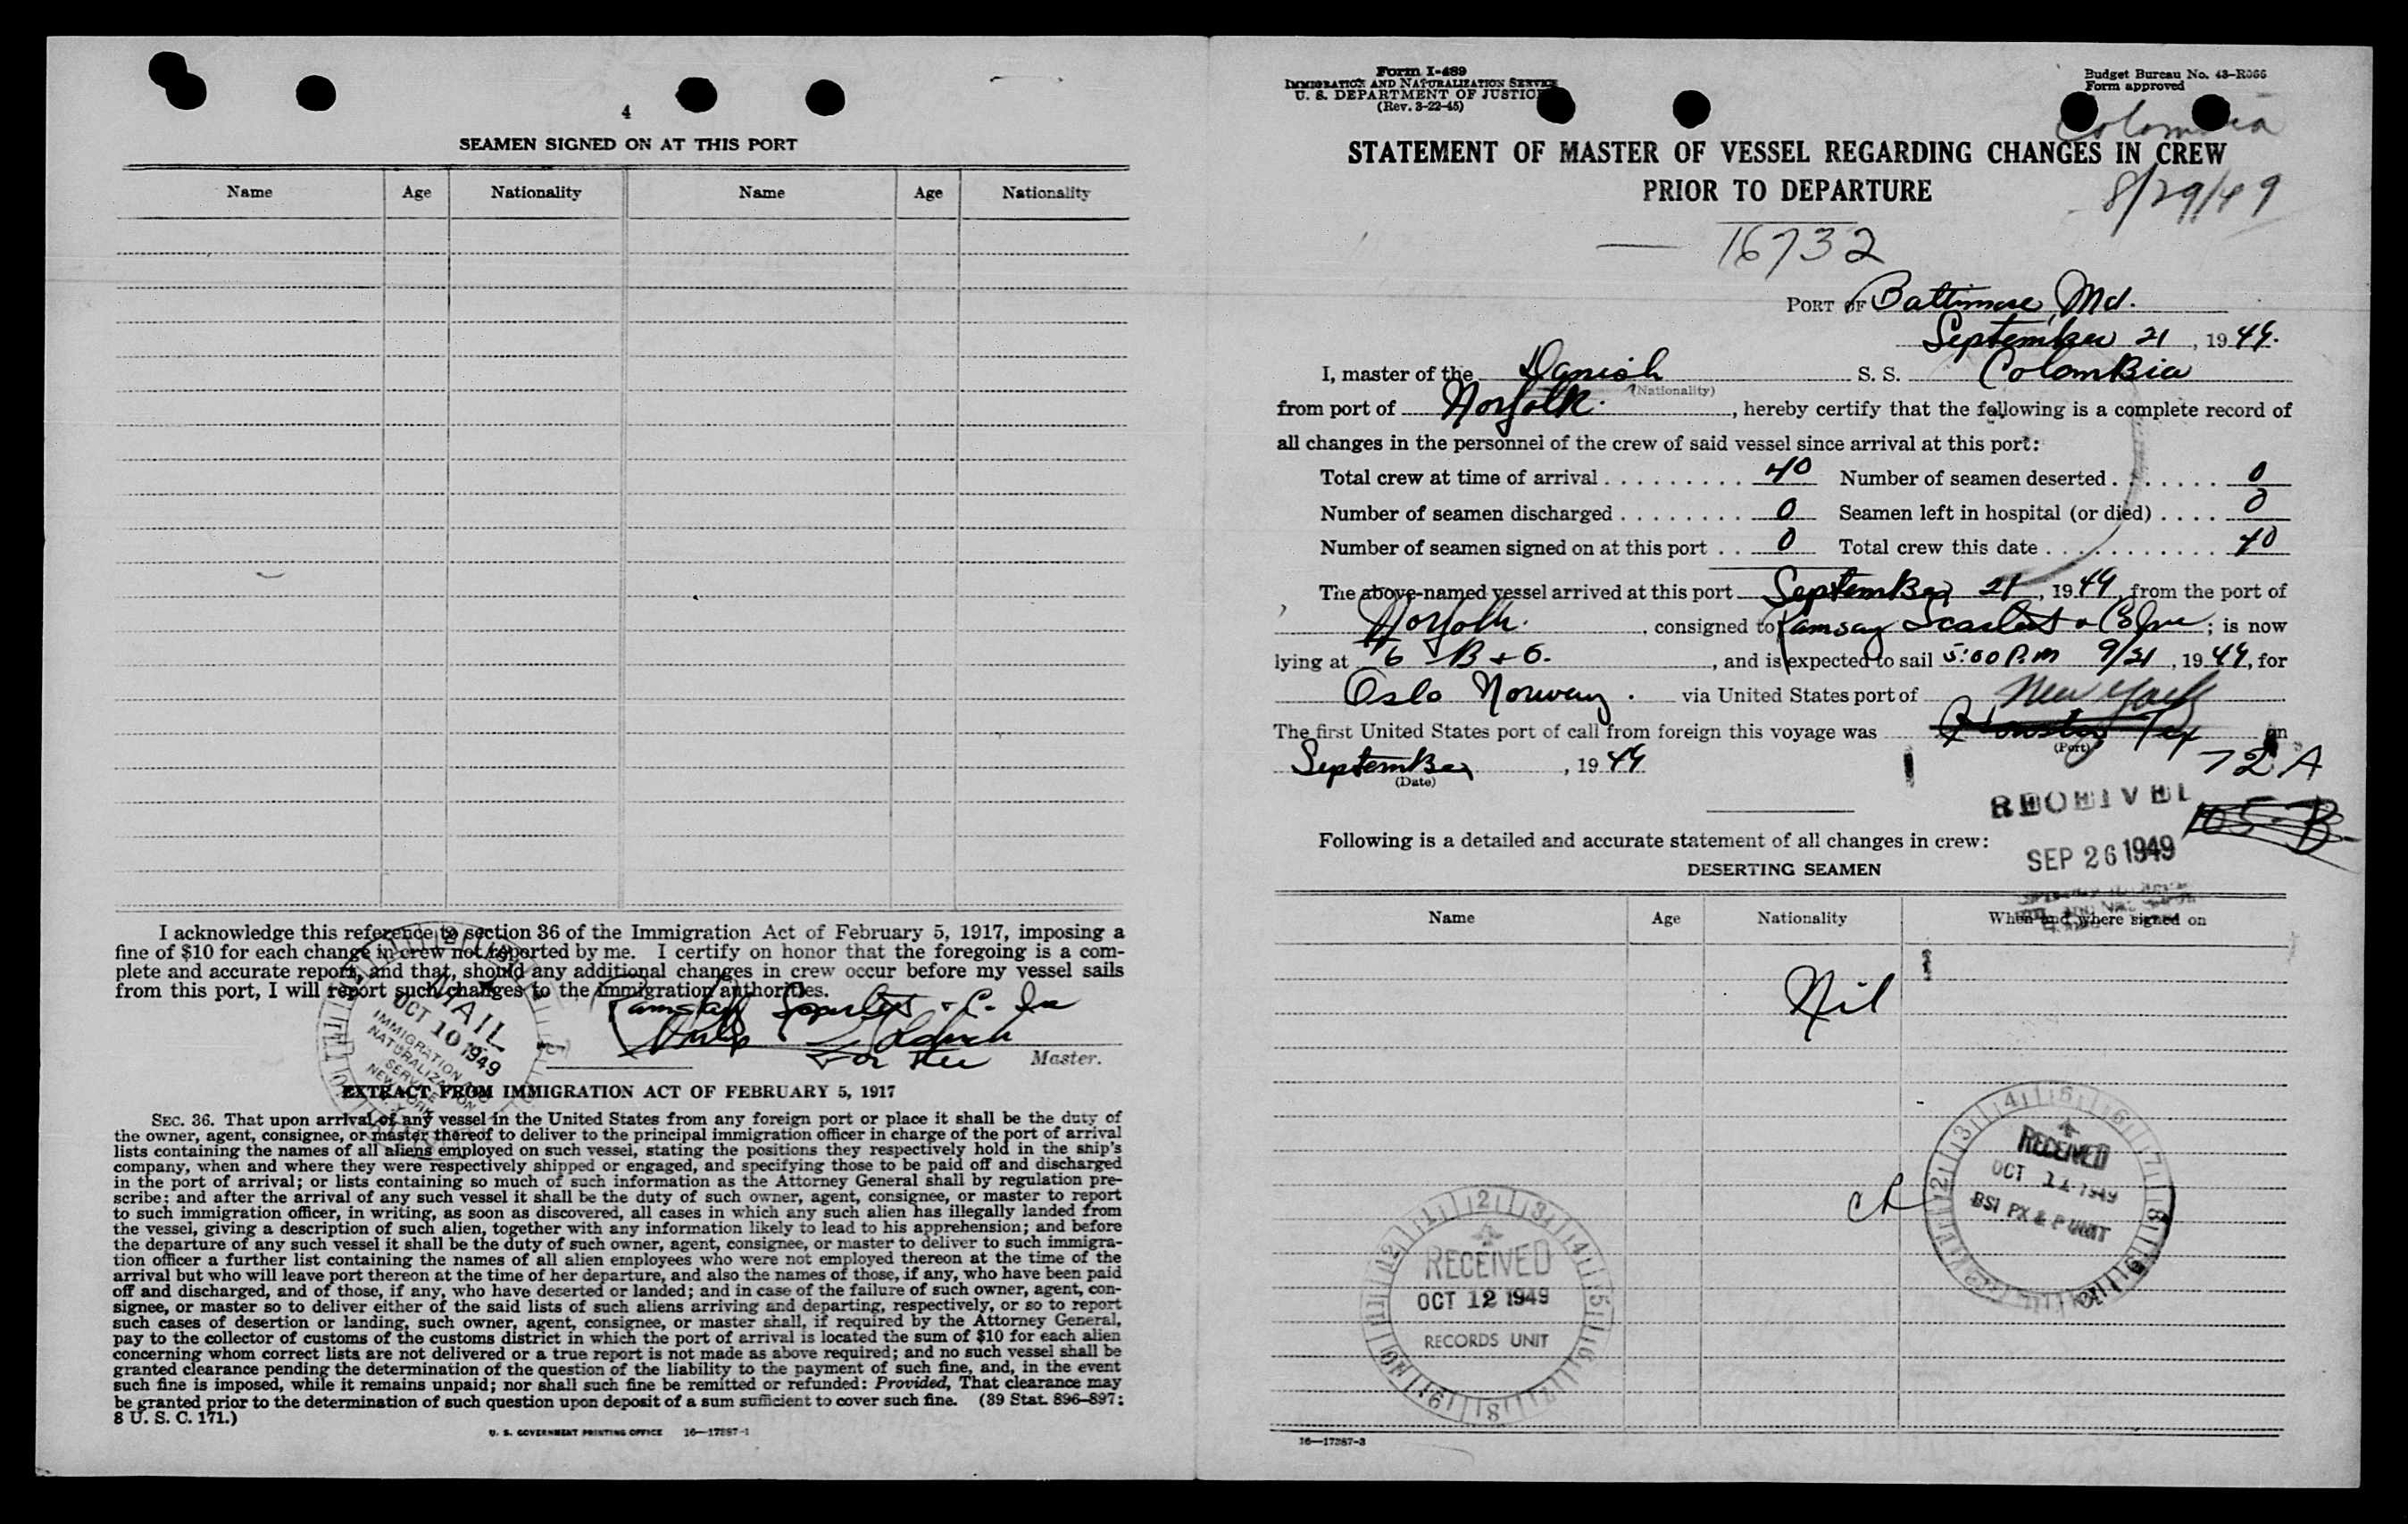 4
SEAMEN SIGNED ON AT THIS PORT
Name Age Nationality Name Age Nationality
I acknowledge this reference to section 36 of the Immigration Act of February 5, 1917, imposing a
fine of $10 for each change in crew not reported by me. I certify on honor that the foregoing is a com-
plete and accurate report, and that, should any additional changes in crew occur before my vessel sails
from this port, I will report such changes to the immigration authorities.
For the Master.
MAIL
OCT 10 1949
IMMIGRATION AND
NATURALIZATION
SERVICE
NEW YORK
EXTRACT FROM IMMIGRATION ACT OF FEBRUARY 5, 1917
SEC. 36. That upon arrival of any vessel in the United States from any foreign port or place it shall be the duty of
the owner, agent, consignee, or master thereof to deliver to the principal immigration officer in charge of the port of arrival
lists containing the names of all aliens employed on such vessel, stating the positions they respectively hold in the ship's
company, when and where they were respectively shipped or engaged, and specifying those to be paid off and discharged
in the port of arrival; or lists containing so much of such information as the Attorney General shall by regulation pre-
scribe; and after the arrival of any such vessel it shall be the duty of such owner, agent, consignee, or master to report
to such immigration officer, in writing, as soon as discovered, all cases in which any such alien has illegally landed from
the vessel, giving a description of such alien, together with any information likely to lead to his apprehension; and before
the departure of any such vessel it shall be the duty of such owner, agent, consignee, or master to deliver to such immigra-
tion officer a further list containing the names of all alien employees who were not employed thereon at the time of the
arrival but who will leave port thereon at the time of her departure, and also the names of those, if any, who have been paid
off and discharged, and of those, if any, who have deserted or landed; and in case of the failure of such owner, agent, con-
signee, or master so to deliver either of the said lists of such aliens arriving and departing, respectively, or so to report
such cases of desertion or landing, such owner, agent, consignee, or master shall, if required by the Attorney General,
pay to the collector of customs of the customs district in which the port of arrival is located the sum of $10 for each alien
concerning whom correct lists are not delivered or a true report is not made as above required; and no such vessel shall be
granted clearance pending the determination of the question of the liability to the payment of such fine, and, in the event
such fine is imposed, while it remains unpaid; nor shall such fine be remitted or refunded: Provided, That clearance may
be granted prior to the determination of such question upon deposit of a sum sufficient to cover such fine. (39 Stat. 896–897;
8 U. S. C. 171.)
U. S. GOVERNMENT PRINTING OFFICE 16—17287-1
Form I-489
IMMIGRATION AND NATURALIZATION SERVICE
U. S. DEPARTMENT OF JUSTICE
(Rev. 3-22-45)
Budget Bureau No. 43-R066
Form approved
Colombia
8/29/49
STATEMENT OF MASTER OF VESSEL REGARDING CHANGES IN CREW
PRIOR TO DEPARTURE
16732
PORT OF Baltimore, Md.
September 21, 1949.
I, master of the Danish S. S. Colombia
(Nationality)
from port of Norfolk, hereby certify that the following is a complete record of
all changes in the personnel of the crew of said vessel since arrival at this port:
Total crew at time of arrival 40 Number of seamen deserted 0
Number of seamen discharged 0 Seamen left in hospital (or died) 0
Number of seamen signed on at this port 0 Total crew this date 40
The above-named vessel arrived at this port September 21, 1949, from the port of
Norfolk, consigned to Ramsay Scarlett & Co Inc; is now
lying at #6 B & O., and is expected to sail 5:00 P.M 9/21, 1949, for
Oslo Norway. via United States port of New York
The first United States port of call from foreign this voyage was Houston Tex on
(Port)
September, 1949
(Date)
72 A
105-B
RECEIVED
SEP 26 1949
Following is a detailed and accurate statement of all changes in crew:
DESERTING SEAMEN
Name Age Nationality When and where signed on
Nil
RECEIVED
OCT 11 1949
BSI PX & P UNIT
RECEIVED
OCT 12 1949
RECORDS UNIT
16—17287-3